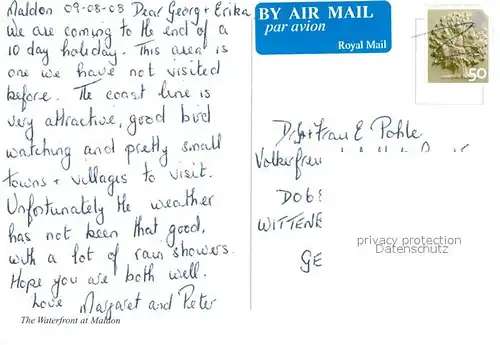 Maldon 09-08-08 Dear Georg + Erika
We are coming to the end of a
10 day holiday. This area is
one we have not visited
before. The coast line is
very attractive, good bird
watching and pretty small
towns + villages to visit.
Unfortunately the weather
has not been that good,
with a lot of rain showers.
Hope you are both well.
Love Margaret and Peter
The Waterfront at Maldon
BY AIR MAIL
par avion
Royal Mail
50
Frau E Pohle
DO68
WITTENB
GE
privacy protection
Datenschutz